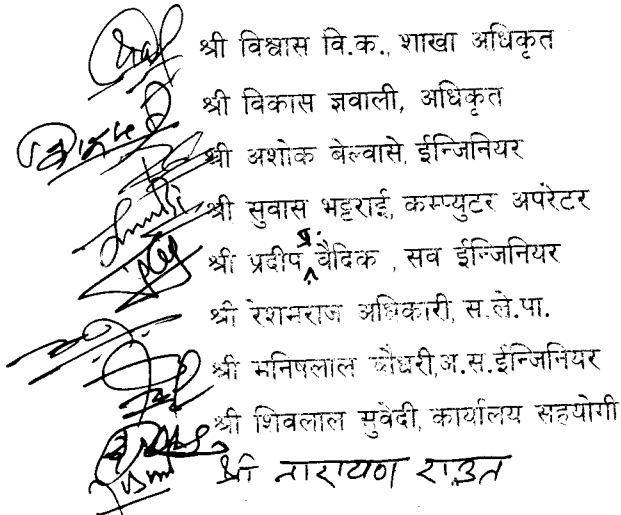 श्री विश्वास वि.क., शाखा अधिकृत
श्री विकास ज्ञवाली, अधिकृत
श्री अशोक बेल्वासे, ईन्जिनियर
श्री सुवास भट्टराई, कम्प्युटर अपरेटर
श्री प्रदीप प्र. वैदिक , सव ईन्जिनियर
श्री रेशमराज अधिकारी, स.ले.पा.
श्री मनिषलाल चौधरी,अ.स.ईन्जिनियर
श्री शिवलाल सुवेदी, कार्यालय सहयोगी
श्री नारायण राउत